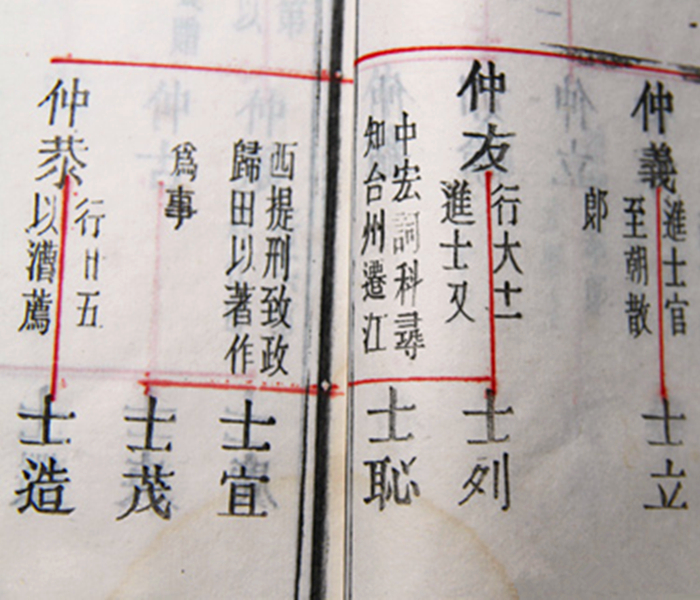 仲義
進士官
至朝散
郎
仲友
行大十一
進士又
中宏詞科尋
知台州遷江
西提刑致政
歸田以著作
爲事
仲恭
行廿五
以漕薦
士立
士列
士恥
士宜
士茂
士造